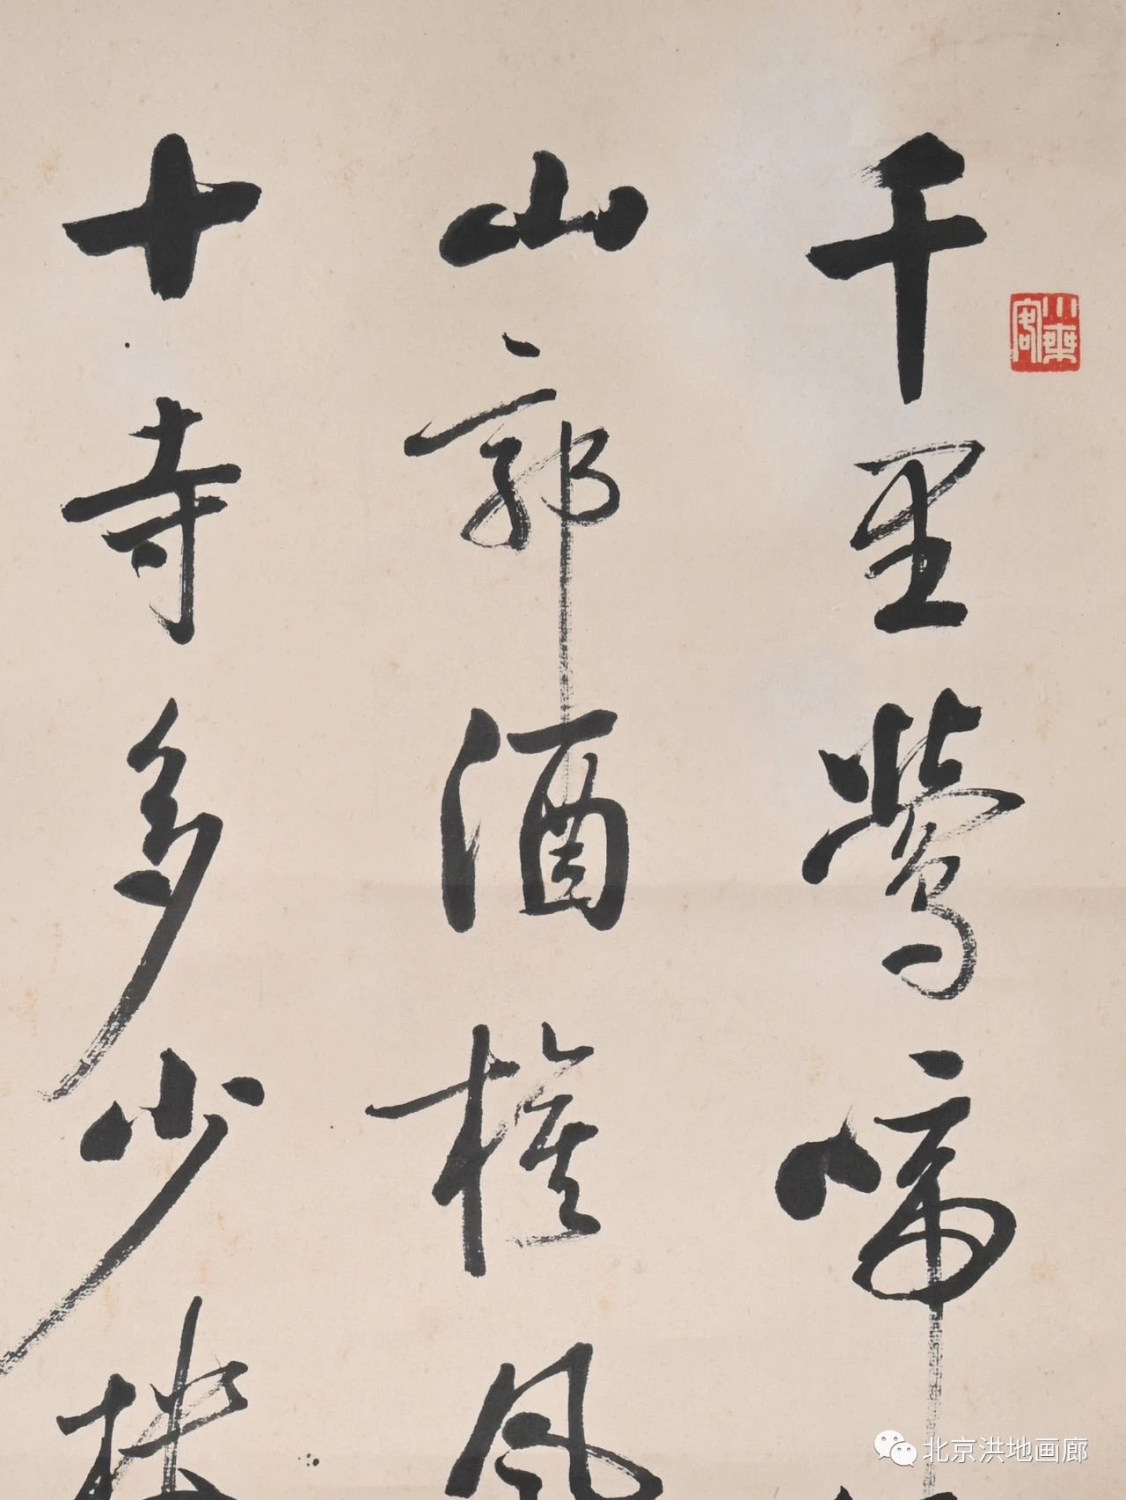 千里鶯啼
山郭酒旗風
十寺多少楼
北京洪地画廊